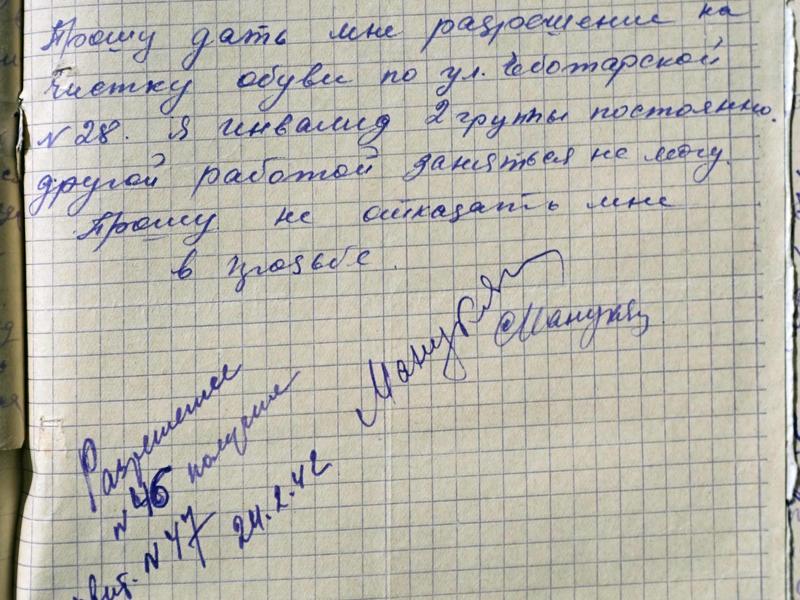 Прошу дать мне разрешение на
чистку обуви по ул. Чеботарской
N 28. Я инвалид 2 группы постоянно.
другой работой заняться не могу.
Прошу не отказать мне
в прозьбе.
Манукян
Манукян
Разрешение
N 46 получил
квит. N 47 24.2.42